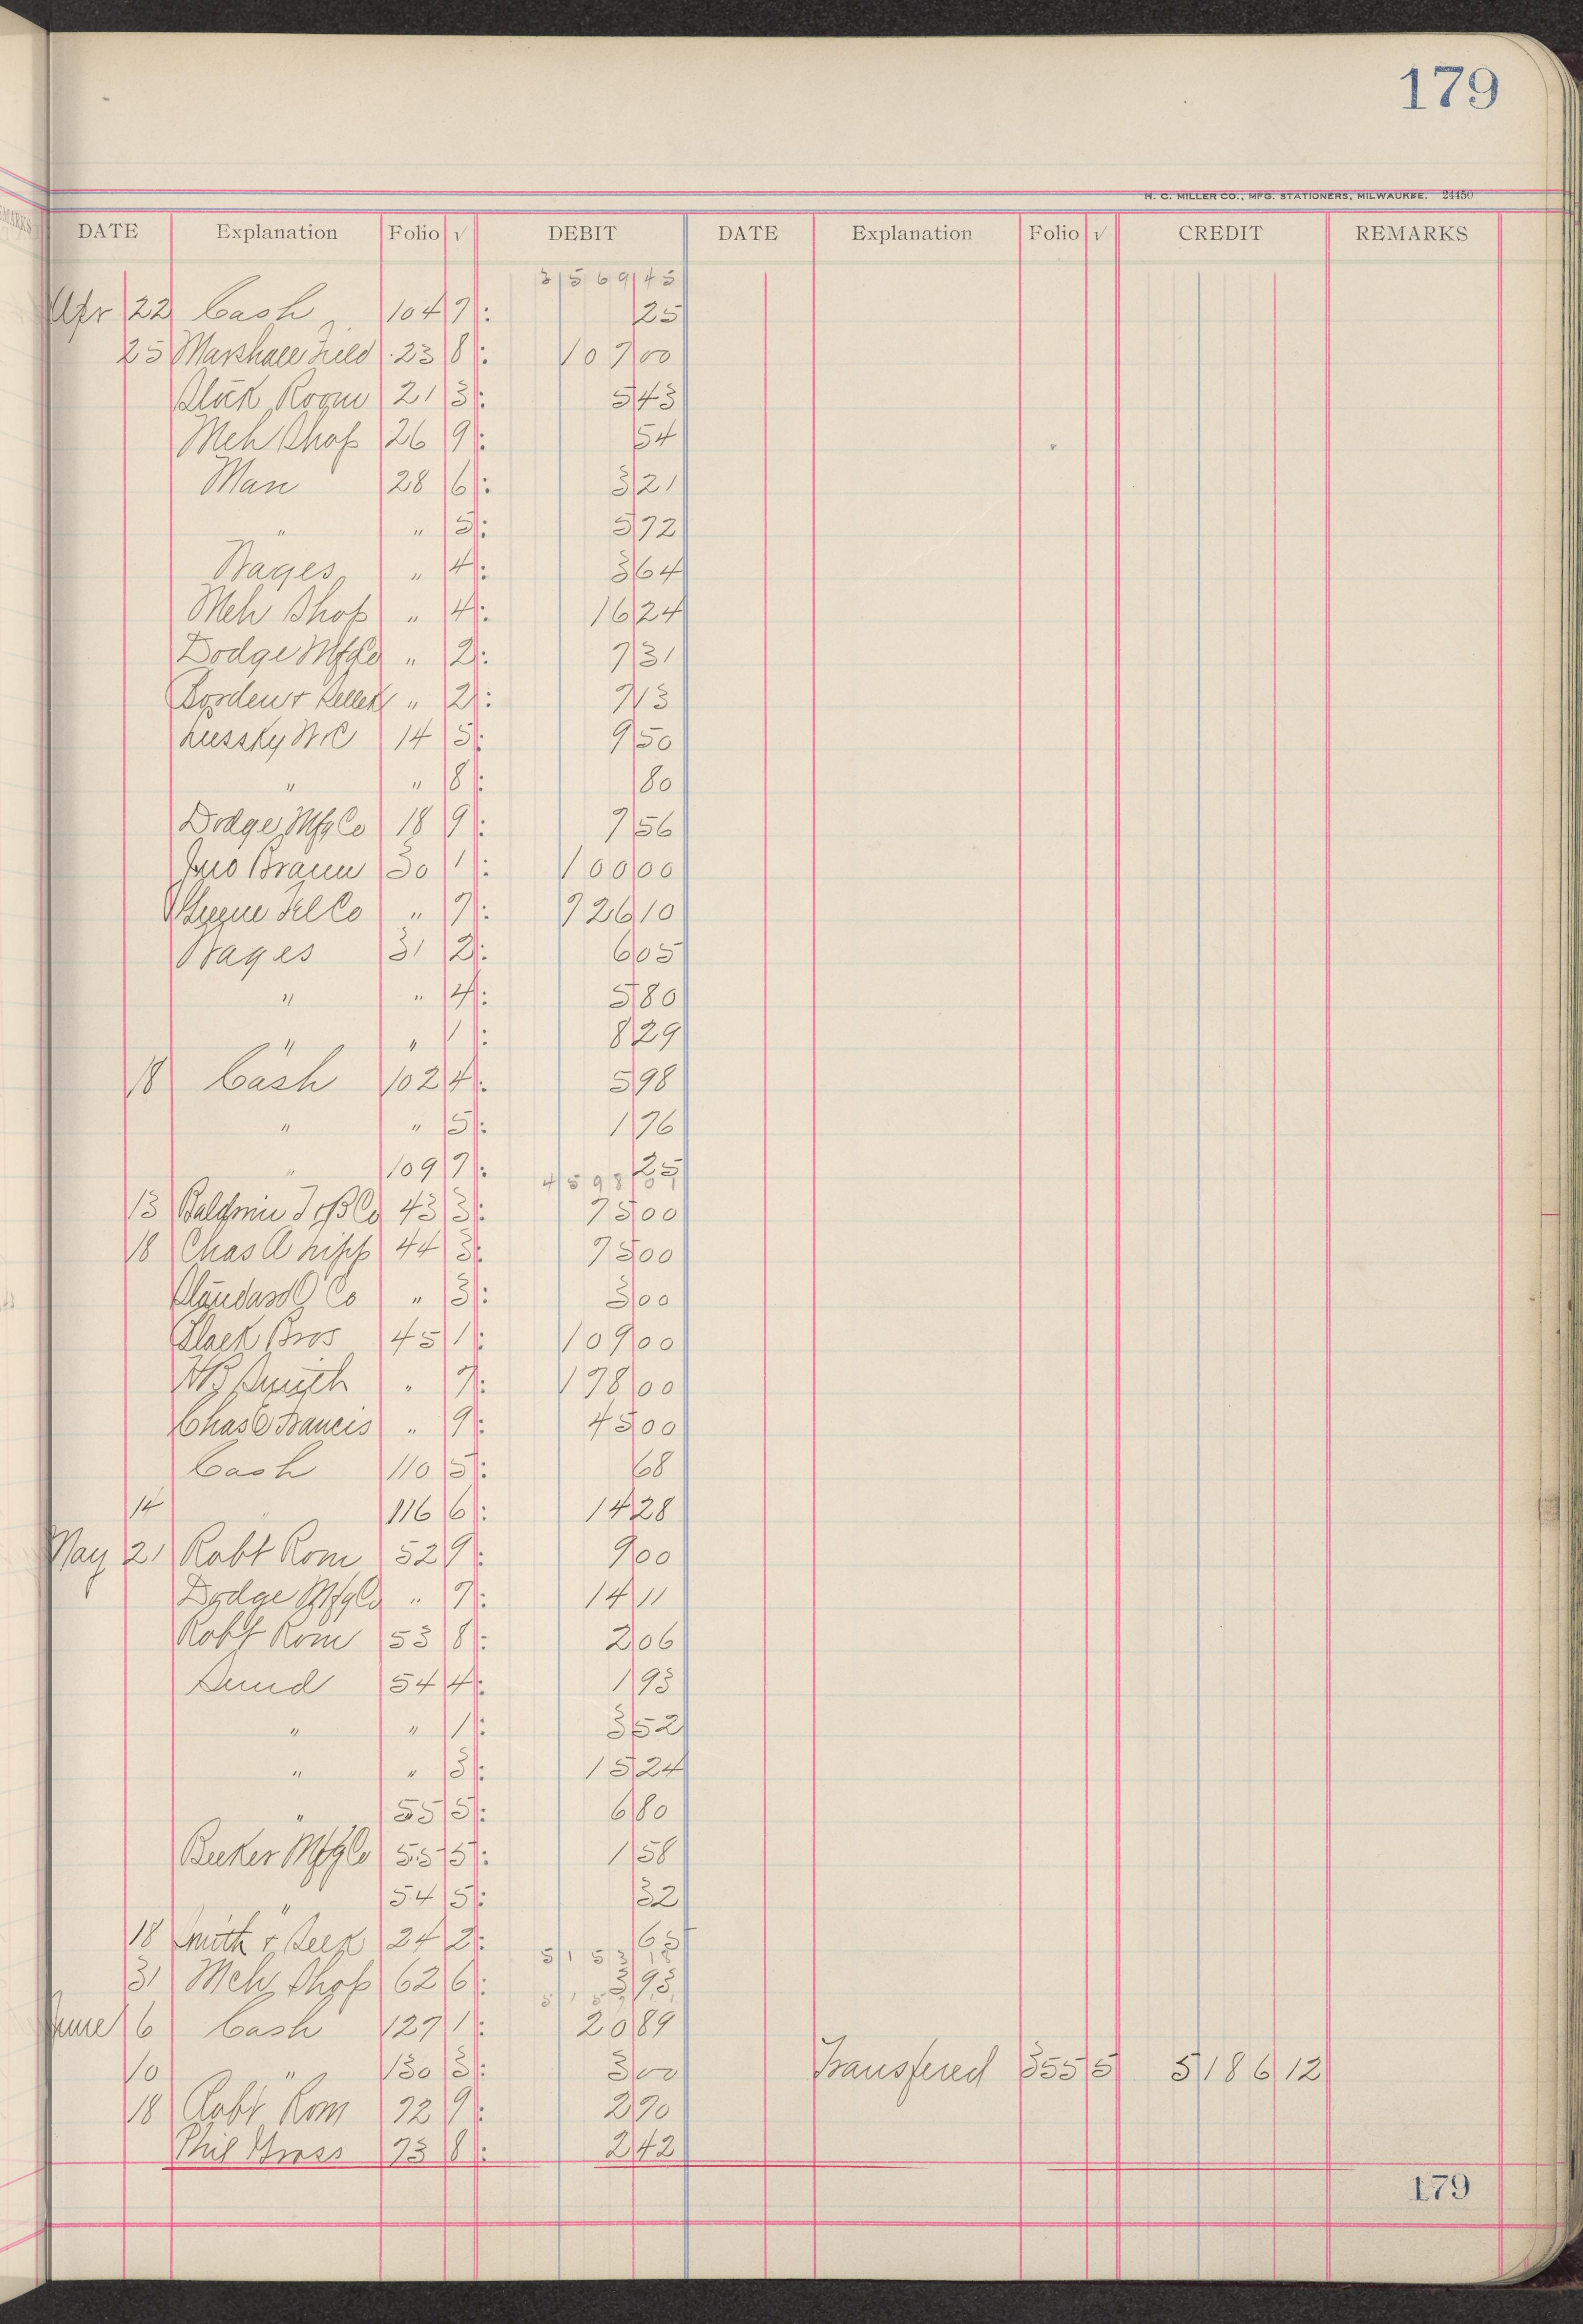 179
H. C. MILLER CO., MFG. STATIONERS, MILWAUKEE. 24450
DATE Explanation Folio √ DEBIT DATE Explanation Folio √ CREDIT REMARKS
3156943
Apr 22 Cash 104 7 25
25 Marshall Field 23 8 107 00
Room 21 3 5 43
Meh Shop 26 9 54
Man 28 6 3 21
" " 5 5 72
Wages " 4 3 64
Meh Shop " 4 16 24
Dodge Mfg Co " 2 7 31
" 2 7 13
14 5 9 50
" " 8 80
Dodge Mfg Co 18 9 7 56
Jno Braun 30 1 100 00
Tel Co " 7 726 10
Wages 31 2 6 05
" " 4 5 80
" " 1 8 29
18 Cash 102 4 5 98
" " 5 1 76
" 109 7 25
13 43 3 75 00
18 Chas A 44 3 75 00
Standard O Co " 3 3 00
Black Bros 45 1 109 00
Smith " 7 178 00
Chas Francis " 9 45 00
Cash 110 5 68
14 116 6 14 28
May 21 Robt Rom 52 9 9 00
Dodge Mfg Co " 7 14 11
Robt Rom 53 8 2 06
Sund 54 4 1 95
" " 1 3 52
" " 3 15 24
" 55 5 6 80
Becker Mfg Co 55 5 1 58
" 54 5 32
18 Smith & 24 2 65
31 Meh Shop 62 6 3 95
June 6 Cash 127 1 20 89
10 " 130 3 3 00 Transfered 355 5 5186 12
18 Robt Rom 72 9 2 70
Phil Gross 73 8 2 42
179